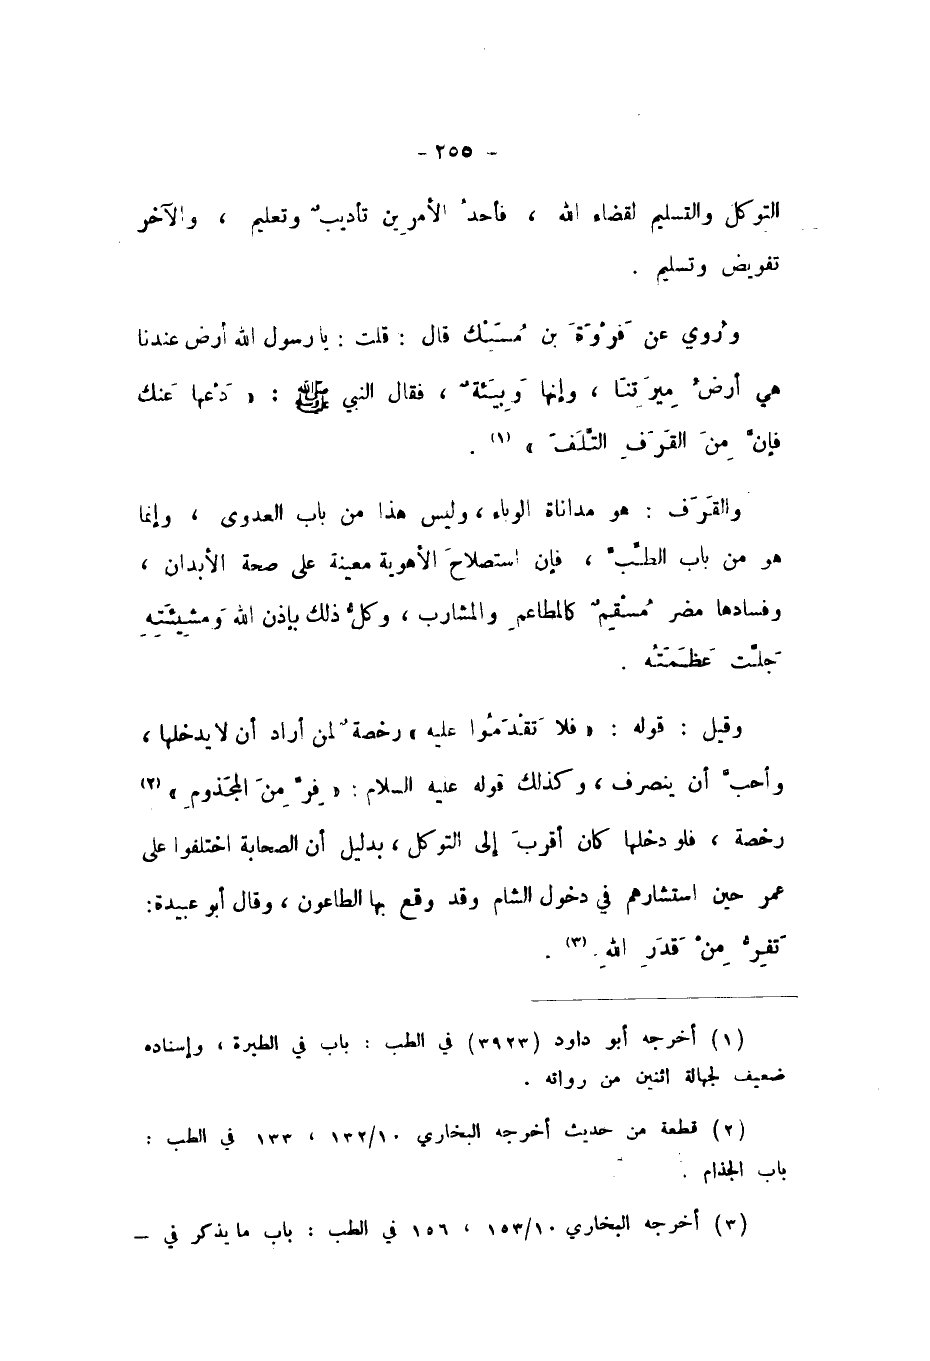 - ٢٥٥ -
التوكل والتسليم لقضاء الله ، فأحدُ الأمرين تأديبٌ وتعليم ، والآخر
تفويض وتسليم .
ورُوي عن فَرْوَةَ بن مُسَيْك قال : قلت : يا رسول الله أرض عندنا
هي أرضُ مِيرَتِنَا ، وإنها وَبِيئَةٌ ، فقال النبي ﷺ : « دَعْها عَنك
فإنَّ مِنَ القَرَفِ التَّلَفَ » (١) .
والقَرَف : هو مداناة الوباء ، وليس هذا من باب العدوى ، وإنما
هو من باب الطبِّ ، فإن استصلاحَ الأهوية معينة على صحة الأبدان ،
وفسادها مضر مُسْقِمٌ كالمطاعمِ والمشارب ، وكلُّ ذلك بإذن الله وَمشيئَتِهِ
جَلَّت عَظَمَتُه .
وقيل : قوله : « فلا تَقْدَمُوا عليه » رخصةٌ لمن أراد أن لا يدخلها ،
وأحبَّ أن ينصرف ، وكذلك قوله عليه السلام : « فِرَّ مِنَ المجَذومِ » (٢)
رخصة ، فلو دخلها كان أقربَ إلى التوكل ، بدليل أن الصحابة اختلفوا على
عمر حين استشارهم في دخول الشام وقد وقع بها الطاعون ، وقال أبو عبيدة :
تَفِرُّ مِنْ قَدَرِ اللهِ (٣) .
(١) أخرجه أبو داود (٣٩٢٣) في الطب : باب في الطيرة ، وإسناده
ضعيف لجهالة اثنين من رواته .
(٢) قطعة من حديث أخرجه البخاري ١٣٢/١٠ ، ١٣٣ في الطب :
باب الجذام .
(٣) أخرجه البخاري ١٥٣/١٠ ، ١٥٦ في الطب : باب ما يذكر في —